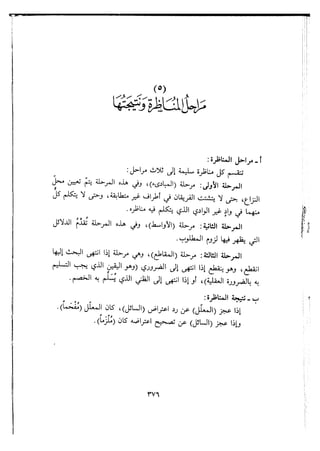 (٥)
مراحل المناظرة ونتيجتها
أ - مراحل المناظرة:
تنقسم كل مناظرة سليمة إلى ثلاث مراحل:
المرحلة الأولى: مرحلة (المبادىء)، وفي هذه المرحلة يتم تعيين محل
النزاع، حتى لا يتشتت الفريقان في أطراف غير متطابقة، وحتى لا يتكلم كل
منهما في واد غير الوادي الذي يتكلم فيه مناظره.
المرحلة الثانية: مرحلة (الأواسط)، وفي هذه المرحلة تُقدَّم الدلائل
التي يظهر فيها لزوم المطلوب.
المرحلة الثالثة: مرحلة (المقاطع)، وهي مرحلة إذا انتهى البحث إليها
انقطع، وهو ينقطع إذا انتهى إلى الضروري (وهو اليقين الذي يجب التسليم
به بالضرورة العقلية)، أو إذا انتهى إلى الظني الذي يُسلِّم به الخصم.
ب - نتيجة المناظرة:
إذا عجز (المعلّل) عن رد اعتراض (السائل)، كان المعلّل (مُفحَماً).
وإذا عجز (السائل) عن تصحيح اعتراضه كان (مُلزَماً).
٣٧٦